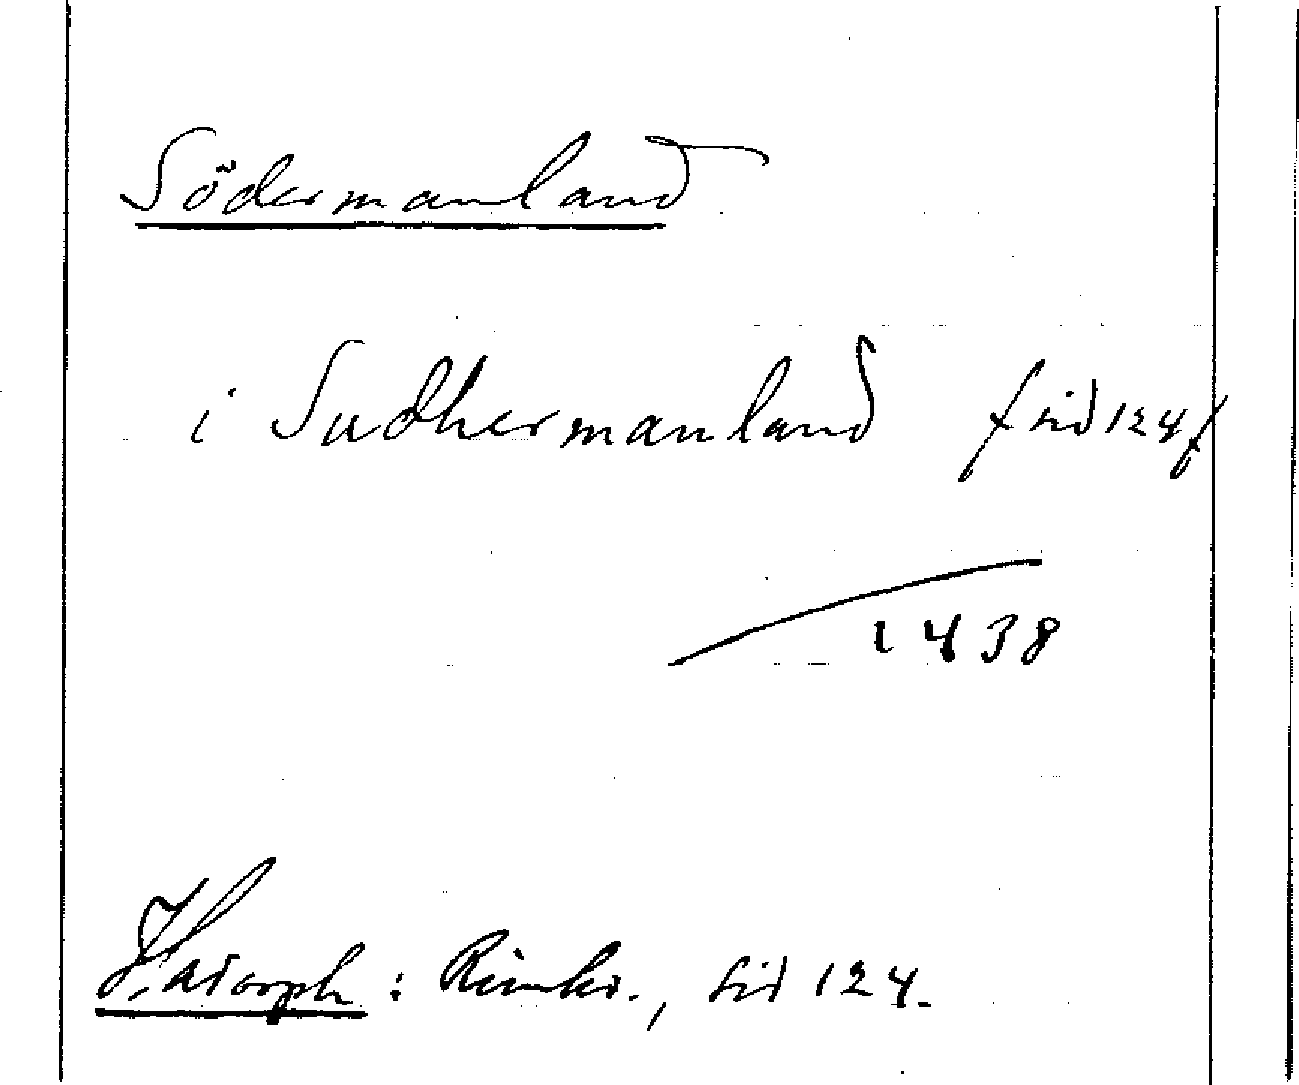 Södermanland
i Sudhermanland /sid 124/
1438
Hadorph: Rimkr., sid 124.